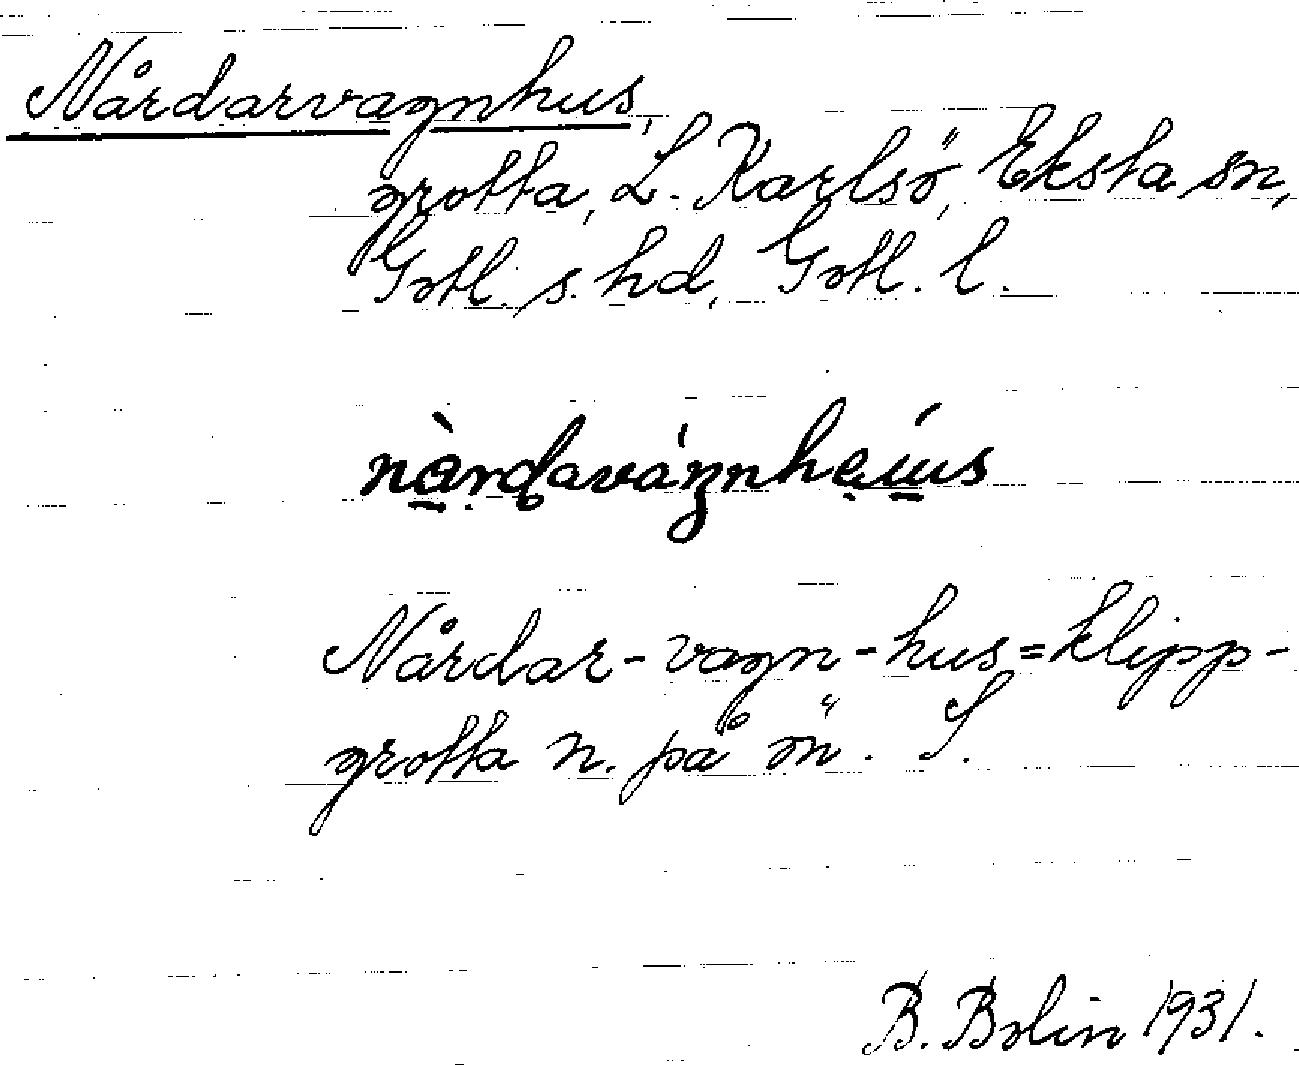 Nårdarvagnhus,
grotta, L. Karlsö, Eksta sn,
Gotl. s. hd, Gotl. l.
Nårdar-vagn-hus = klipp-
grotta n. på ön. S.
B. Bolin 1931.